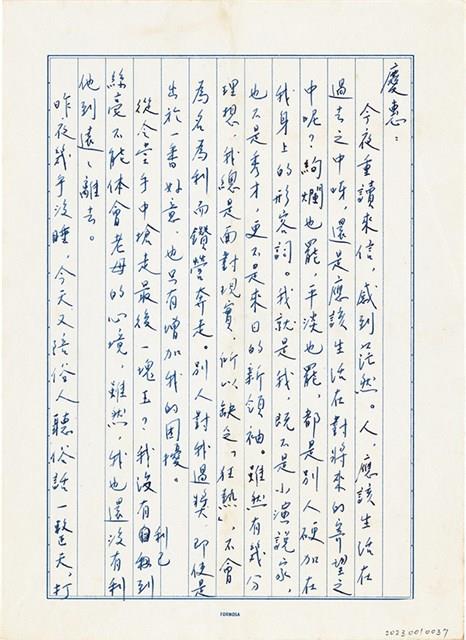 慶惠：
今夜重讀來信，感到茫然。人，應該生活在
過去之中呀，還是應該生活在對將來的寄望之
中呢？絢爛也罷，平淡也罷，都是別人硬加在
我身上的形容詞。我就是我，既不是小演說家，
也不是秀才，更不是來日的新領袖。雖然有幾分
理想，我總是面對現實，所以缺乏「狂熱」，不會
為名為利而鑽營奔走。別人對我過獎，即使是
出於一番好意，也只有增加我的困擾。
從令堂手中搶走最後一塊玉？我沒有自私到
利己
絲毫不能体會老母的心境，雖然，我也還沒有利
他到遠遠離去。
昨夜幾乎沒睡，今天又陪俗人聽俗話一整天，打
FORMOSA
20230010037